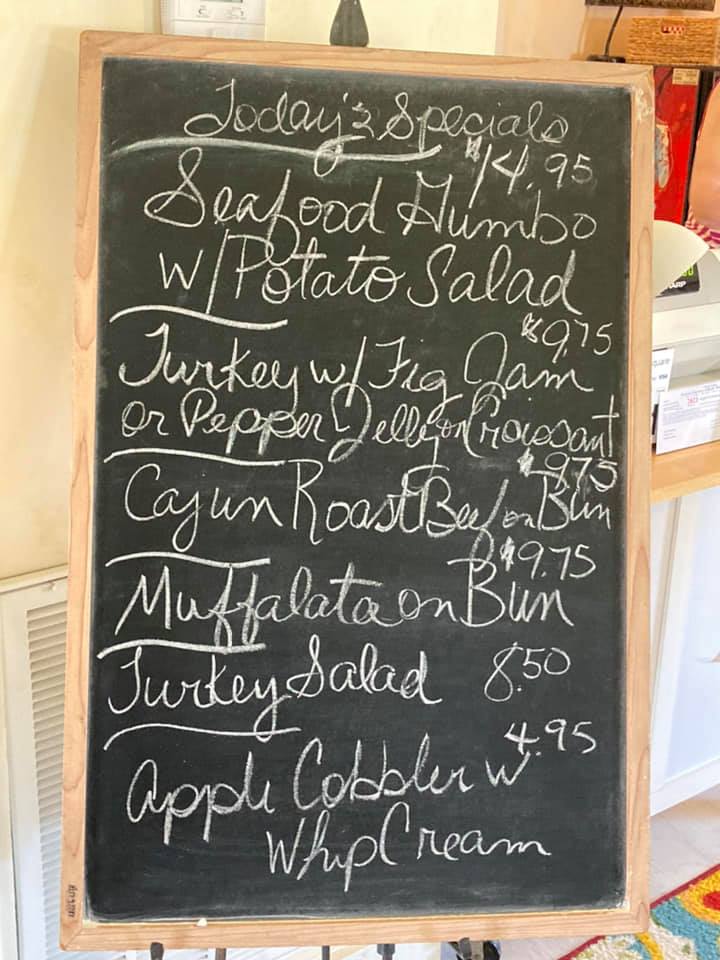 Today's Specials
$14.95
Seafood Gumbo
w/Potato Salad
$9.75
Turkey w/ Fig Jam
or Pepper Jelly on Croissant
$9.75
Cajun Roast Beef on Bun
$9.75
Muffalata on Bun
Turkey Salad 8.50
4.95
Apple Cobbler w
Whip Cream